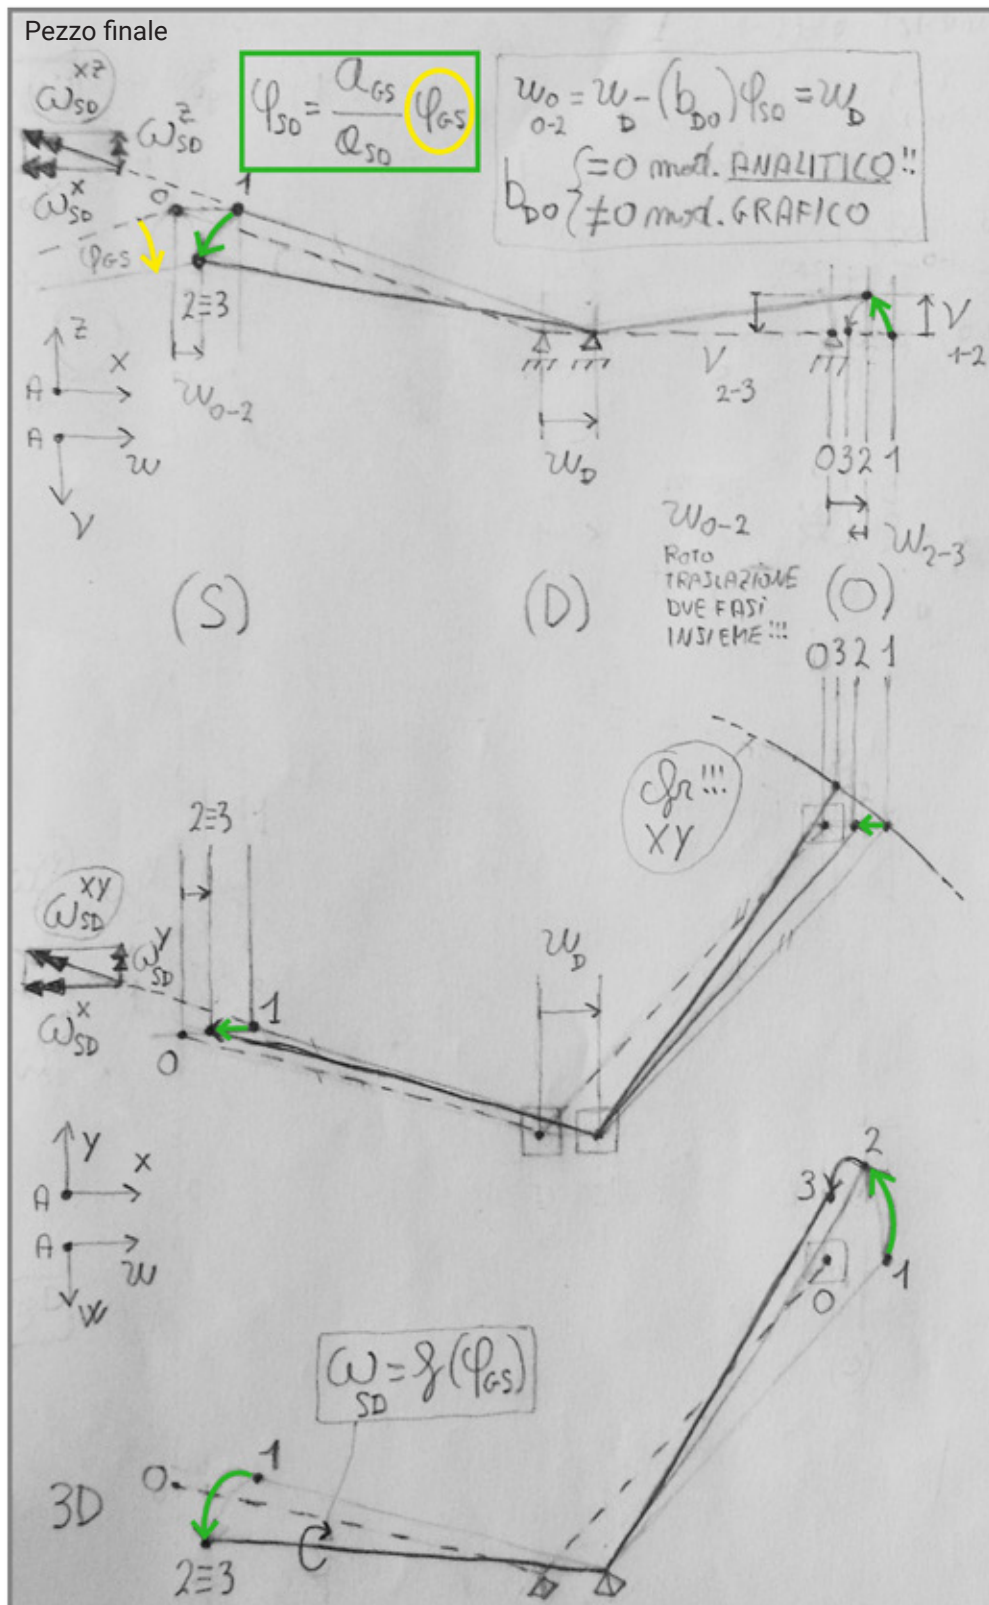 Pezzo finale
ω_SD^xz
ω_SD^z
ω_SD^x
φ_SD = a_GS / a_SD φ_GS
w_0-2 = w_D - (b_DO) φ_SD = w_D
b_DO { =0 mod. ANALITICO!!
≠0 mod. GRAFICO
0 1
φ_GS
2≡3
w_0-2
Z
A X
A w
V
w_D
V 2-3
V 1-2
0 3 2 1
w_0-2
ROTO
TRASLAZIONE
DUE FASI
INSIEME!!!
w_2-3
(S) (D) (O)
0 3 2 1
cfr!!!
XY
2≡3
ω_SD^xy
ω_SD^y
ω_SD^x
0 1
w_D
Y
A X
A w
W
2
3
1
0
ω_SD = f(φ_GS)
3D
0 1
2≡3